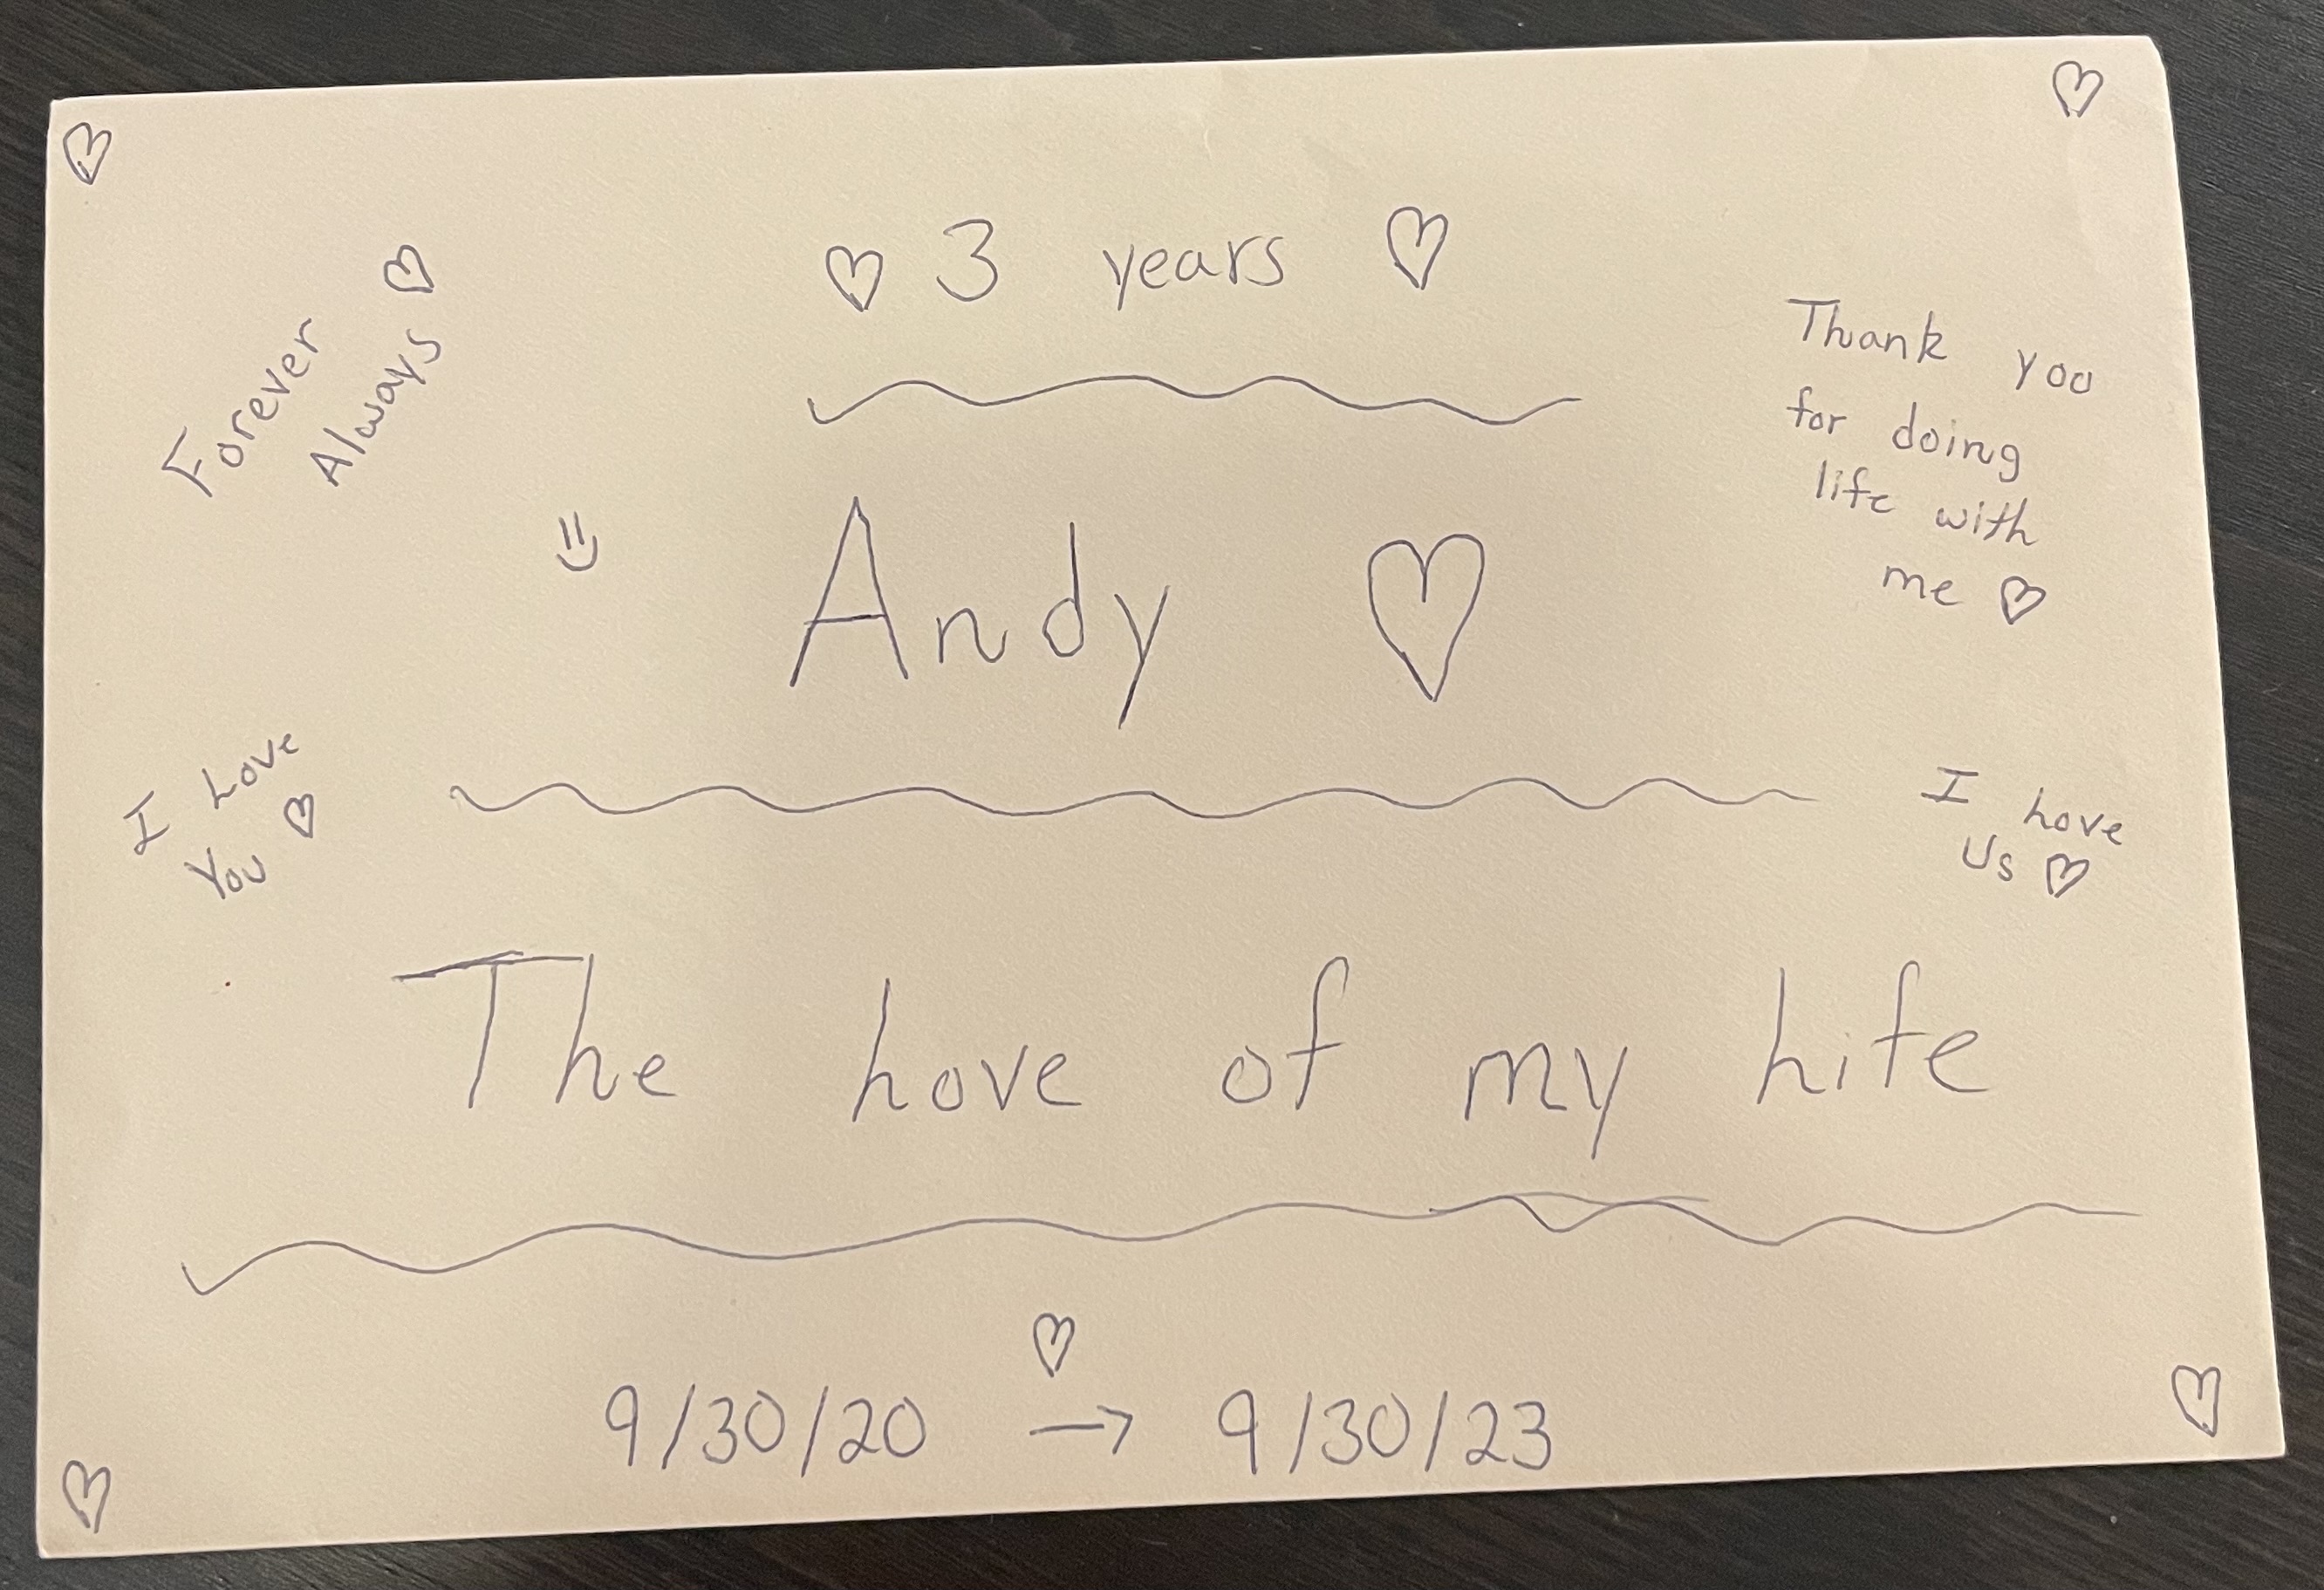 ♡ 3 years ♡
Forever
Always ♡
Thank you
for doing
life with
me ♡
Andy ♡
I Love
You ♡
I Love
Us ♡
The Love of my Life
♡
9/30/20 → 9/30/23